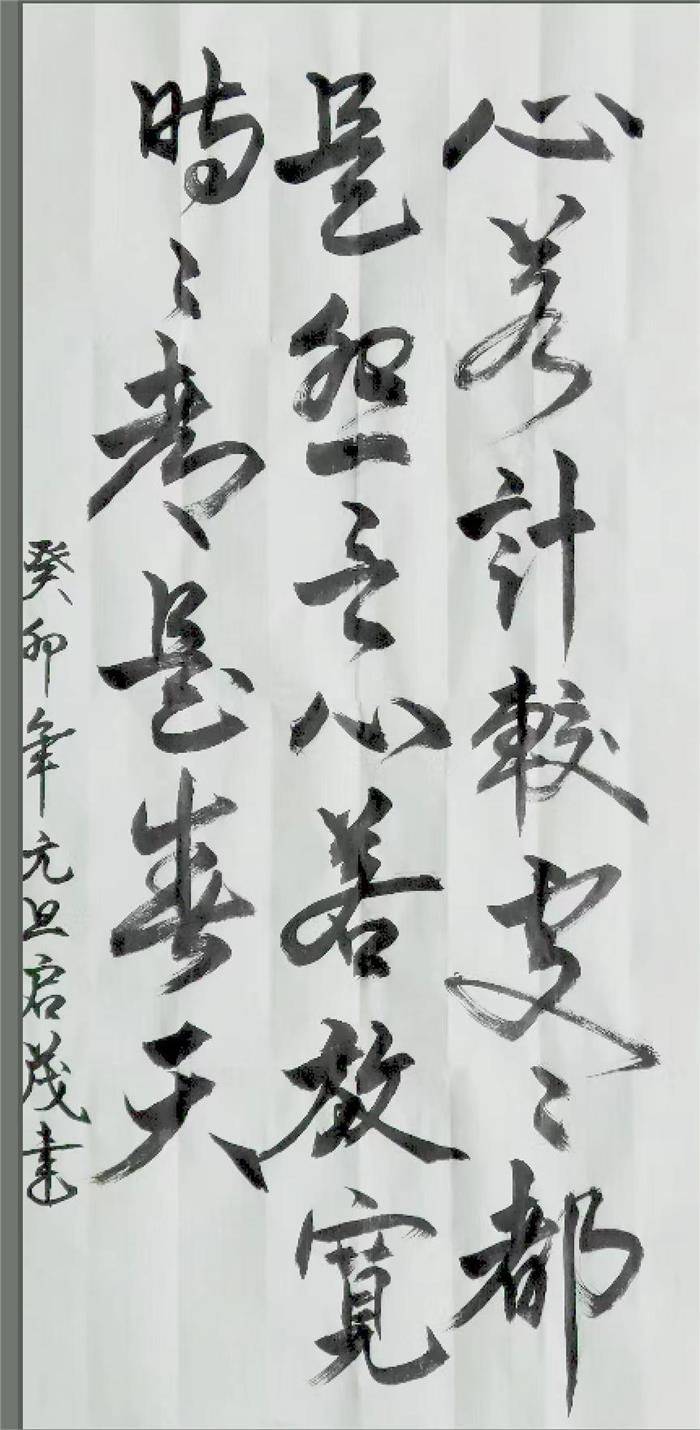 心若計較处々都
是怨言心若放寬
時々都是春天
癸卯年元旦启茂書